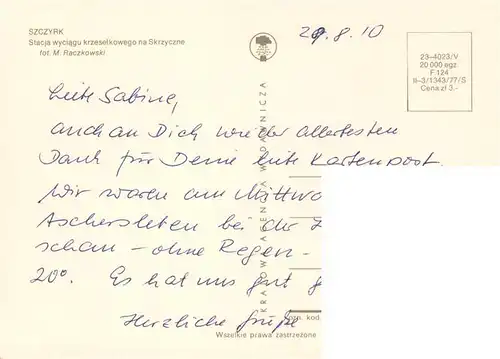 SZCZYRK
Stacja wyciągu krzesełkowego na Skrzyczne
fot. M. Raczkowski
29.8.10
23-4023/V
20 000 egz.
F 124
II-3/1343/77/S
Cena zł 3.-
KRAJOWA AGENCJA WYDAWNICZA
Liebe Sabine,
auch an Dich wieder allerbesten
Dank für Deine liebe Kartenpost.
Wir waren am Mittwo
Aschersleben bei der
schau – ohne Regen –
20°. Es hat uns gut g
Herzliche Grüße
kod
Wszelkie prawa zastrzeżone